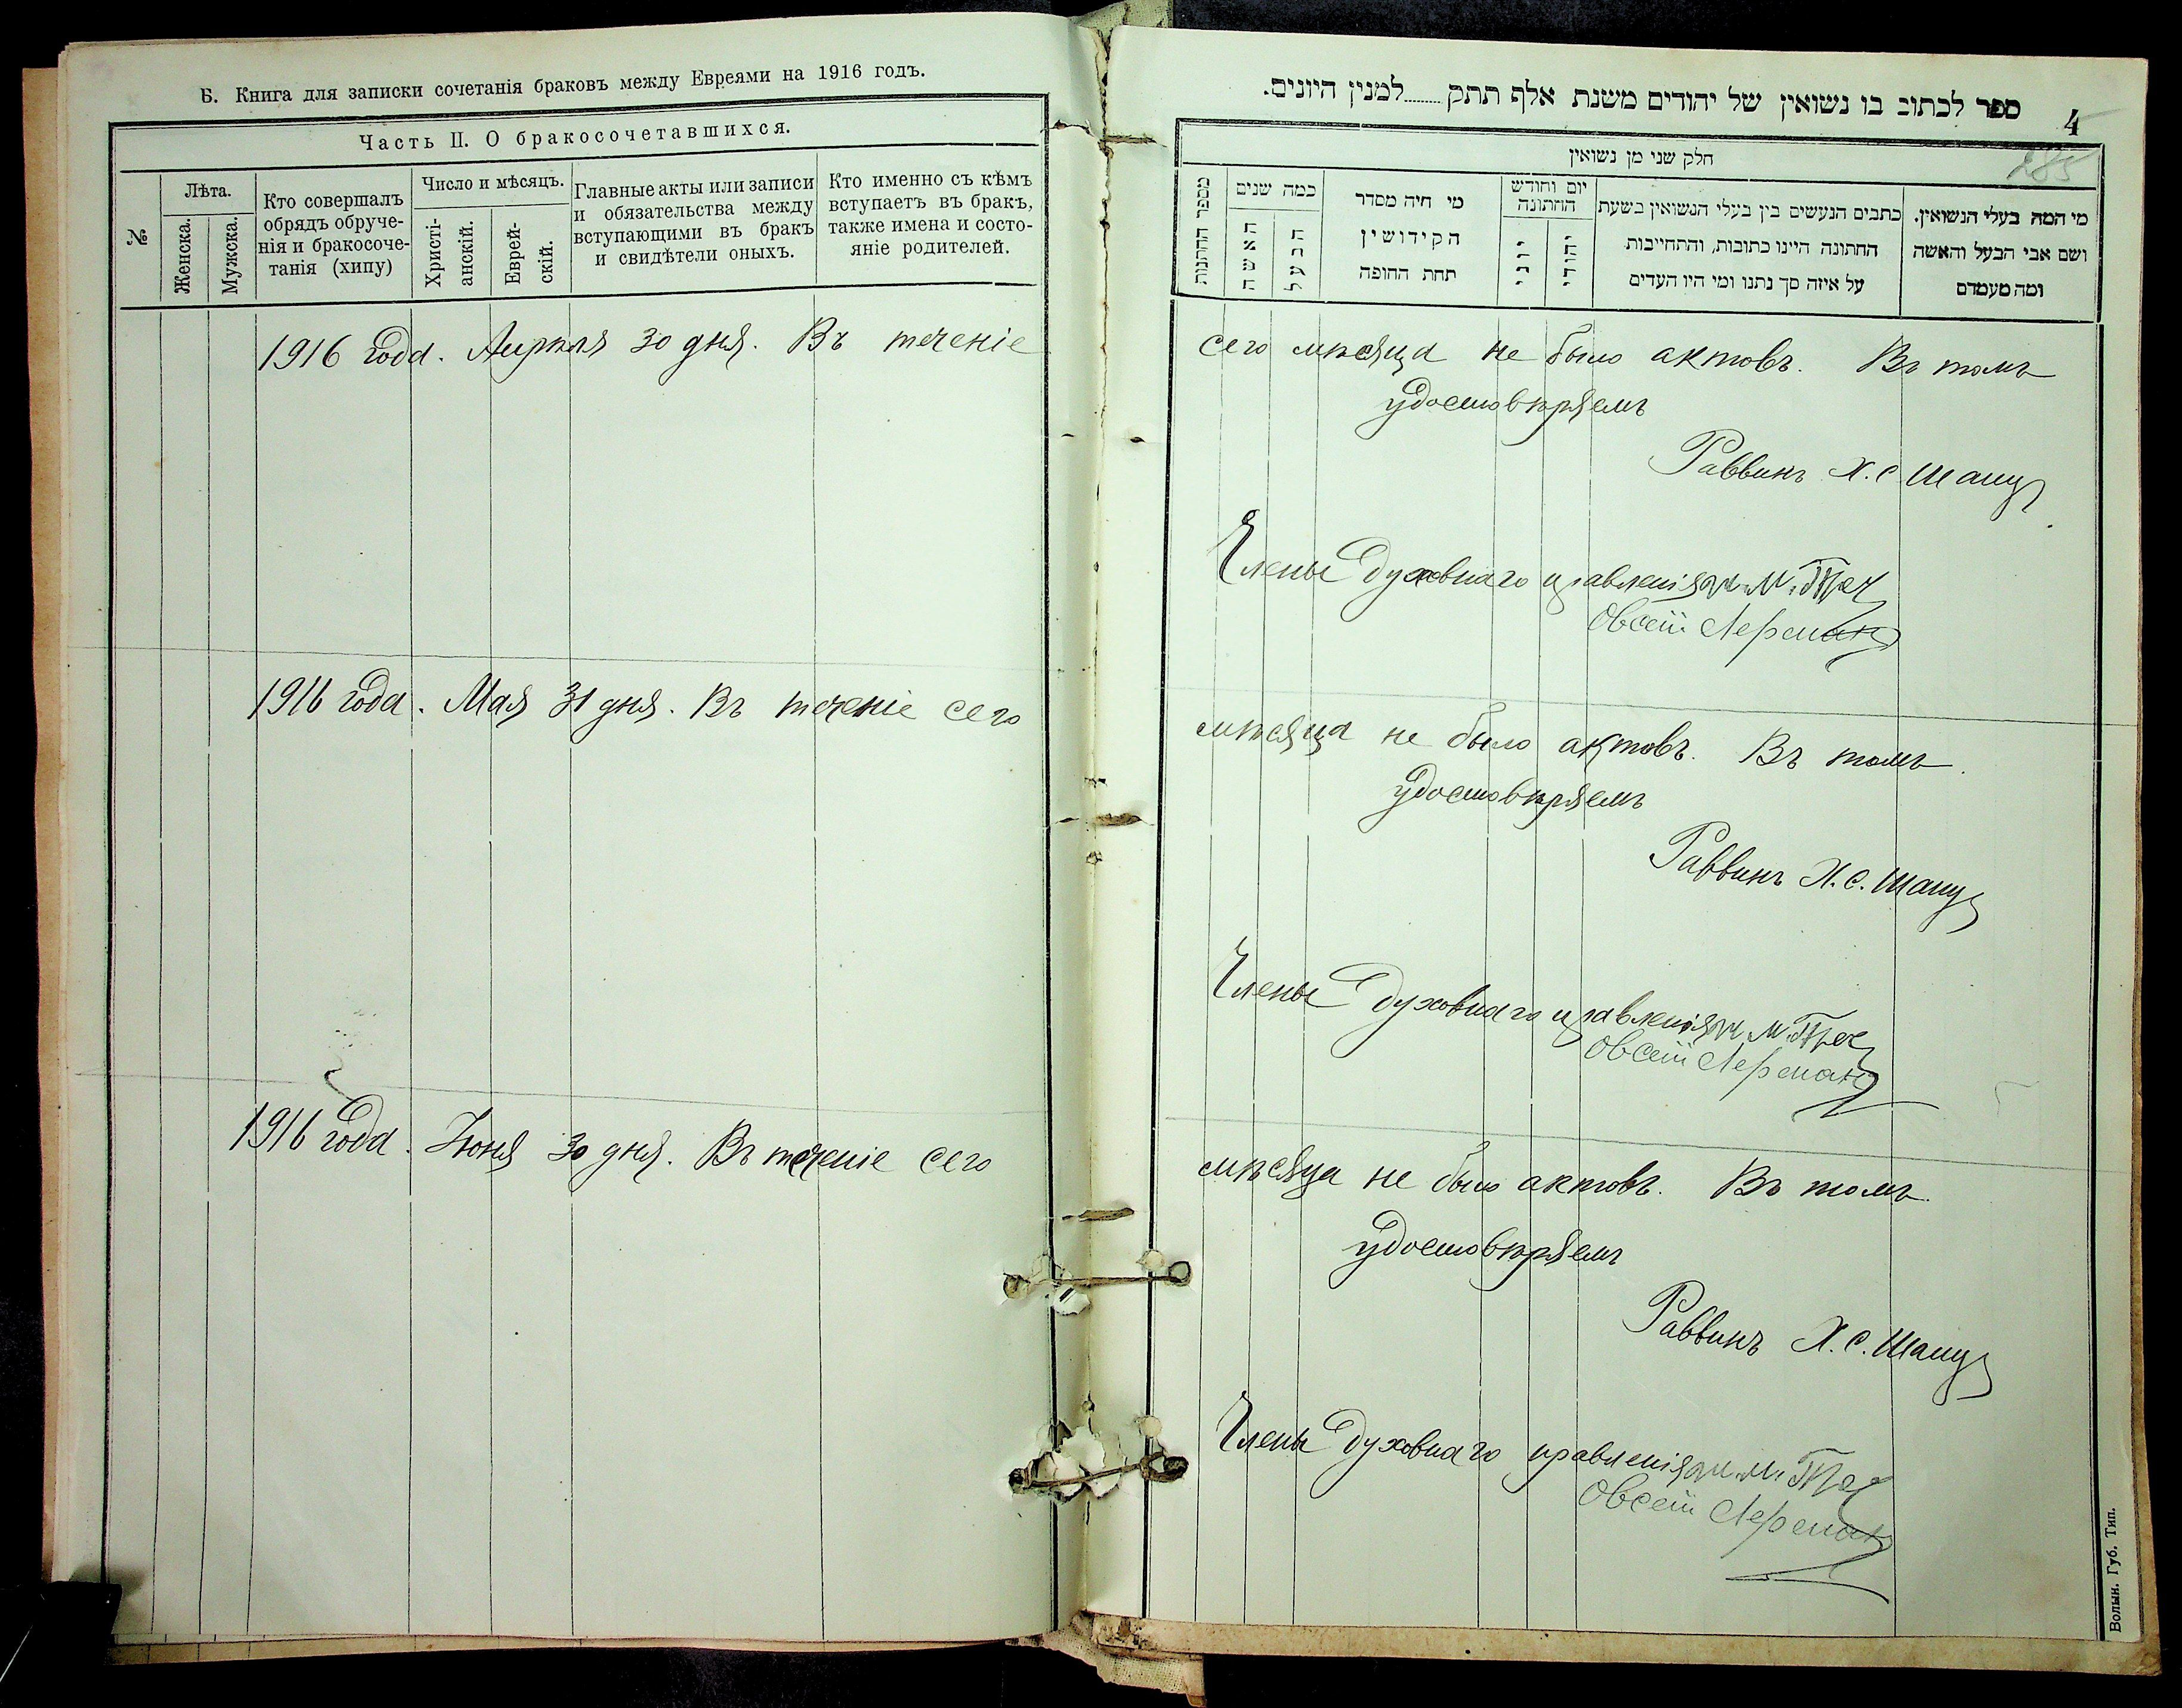 Б. Книга для записки сочетанія браковъ между Евреями на 1916 годъ.
Часть II. О бракосочетавшихся.
№
Лѣта.
Женска.
Мужска.
Кто совершалъ
обрядъ обруче-
нія и бракосоче-
танія (хипу)
Число и мѣсяцъ.
Христі-
анскій.
Еврей-
скій.
Главные акты или записи
и обязательства между
вступающими въ бракъ
и свидѣтели оныхъ.
Кто именно съ кѣмъ
вступаетъ въ бракъ,
также имена и состо-
яніе родителей.
1916 года. Апрѣля 30 дня. Въ теченіе
1916 года. Мая 31 дня. Въ теченіе сего
1916 года. Іюня 30 дня. Въ теченіе сего
ספר לכתוב בו נשואין של יהודים משנת אלף תתק........למנין היונים.
4
285
חלק שני מן נשואין
מי המה בעלי הנשואין.
ושם אבי הבעל והאשה
ומה מעמדם
כתבים הנעשים בין בעלי הנשואין בשעת
החתונה היינו כתובות, והתחייבות
על איזה סך נתנו ומי היו העדים
יום וחודש
החתונה
יהודי
יוני
מי חיה מסדר
הקידושין
תחת החופה
כמה שנים
הבעל
האשה
מספר החתנות
сего мѣсяца не было актовъ. Въ томъ
удостовѣряемъ
Раввинъ Х. С. Шацъ
Члены Духовнаго правленія М.
Овсей Лерманъ
мѣсяца не было актовъ. Въ томъ
удостовѣряемъ
Раввинъ Х. С. Шацъ
Члены Духовнаго правленія М.
Овсей Лерманъ
мѣсяца не было актовъ. Въ томъ
удостовѣряемъ
Раввинъ Х. С. Шацъ
Члены Духовнаго правленія М.
Овсей Лерманъ
Волын. Губ. Тип.